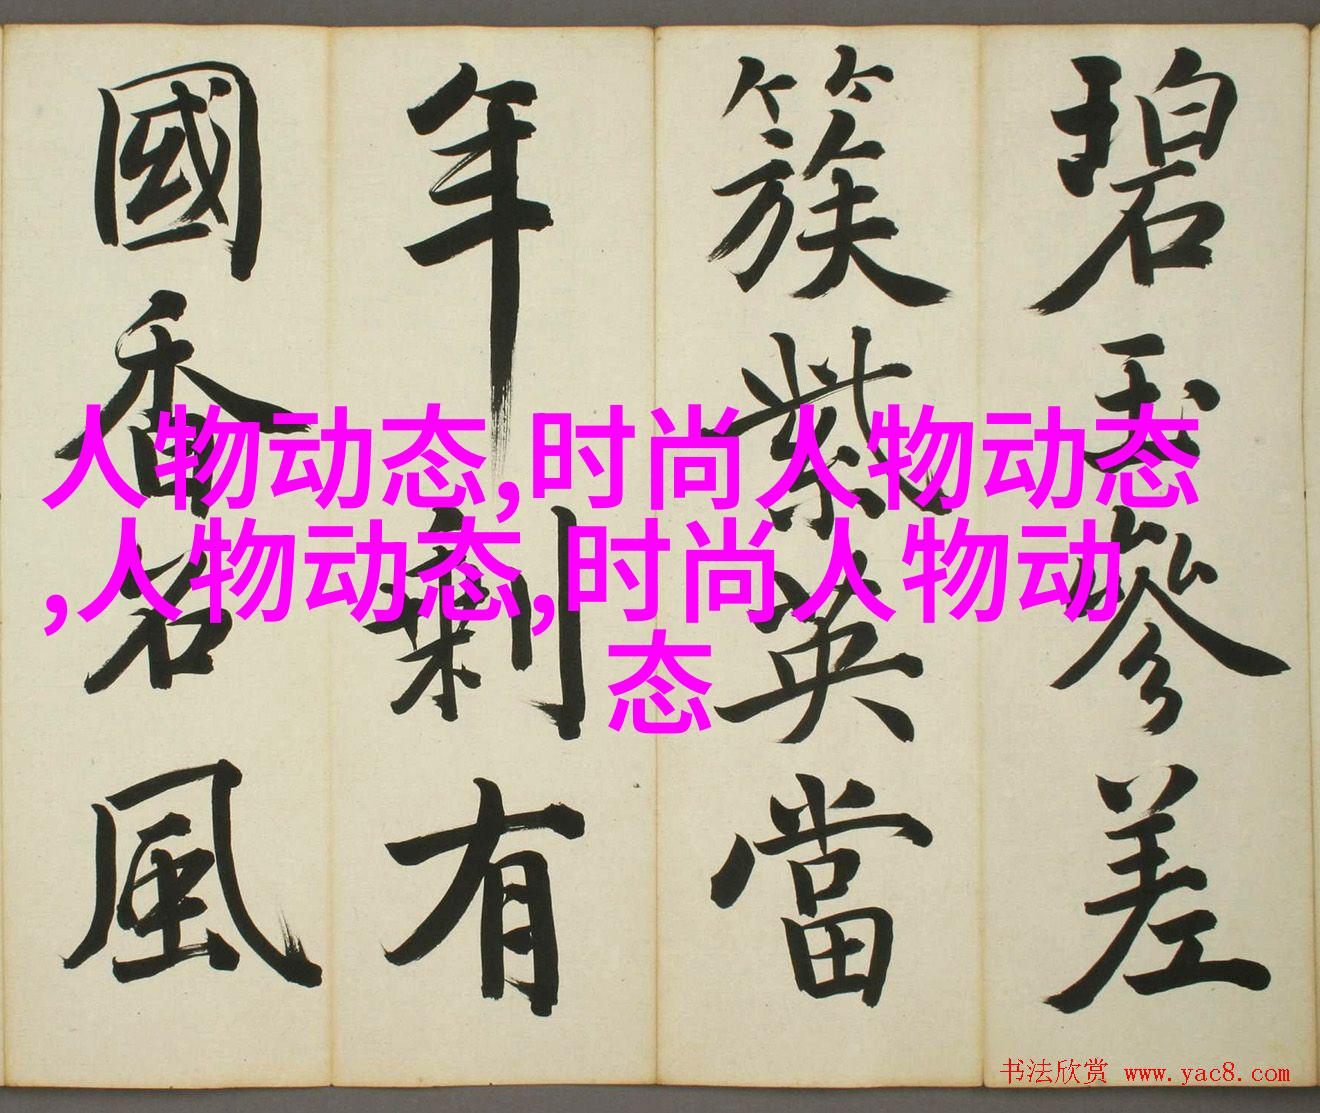 碧玉參差
簇紫英當
年剩有
國香名風
人物动态,时尚人物动态
,人物动态,时尚人物动
态
书法欣赏 www.yac8.com